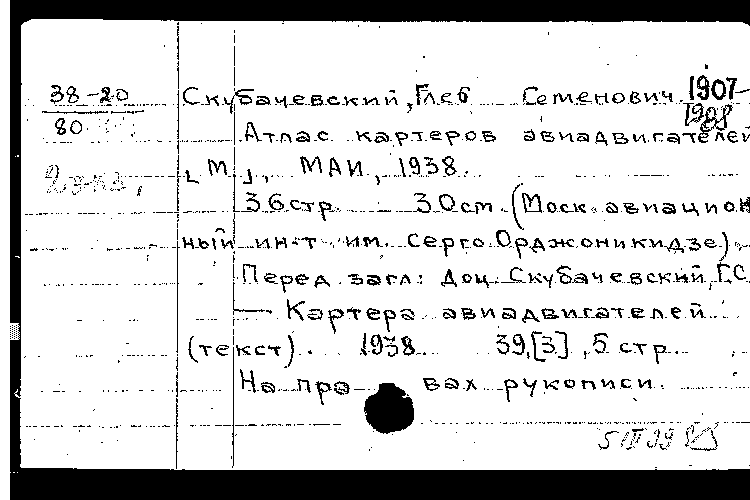 38-20
80
2 экз.
Скубачевский, Глеб Семенович 1907-
Атлас картеров авиадвигателей
[М], МАИ, 1938.
36 стр. 30 см (Моск. авиацион
ный ин-т им. Серго Орджоникидзе)
Перед загл: Доц. Скубачевский, Г.С.
— Картера авиадвигателей
(текст). 1938 39,[3], 5 стр.
На пра вах рукописи.